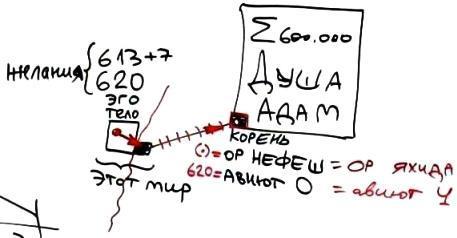 Σ600.000
ДУША
АДАМ
желания{
613+7
620
ЭГО
ТЕЛО
КОРЕНЬ
(•)=ОР НЕФЕШ = ОР ЯХИДА
620=АВИЮТ 0 = авиют 4
Этот мир